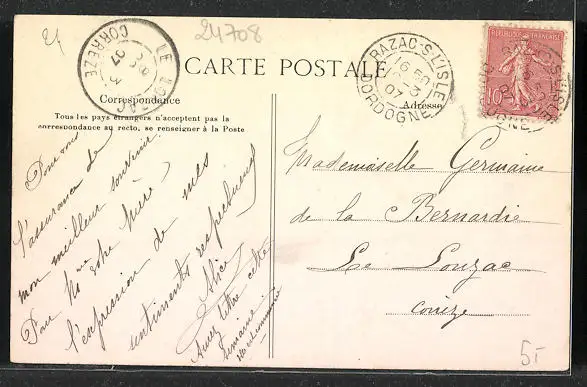 24708
CARTE POSTALE
Correspondance
Adresse
Tous les pays étrangers n'acceptent pas la
correspondance au recto, se renseigner à la Poste
LE LO
CORRÈZE
RAZAC-S-L'ISLE
16 50
3
07
DORDOGNE
RÉPUBLIQUE FRANÇAISE
10
Pour vous
l'assurance de
mon meilleur souvenir.
Pour Mme votre mère,
l'expression de mes
sentiments respectueux
Alice
Aurez lettre cette
semaine
Mademoiselle Germaine
de la Bernardie
Le Louzac
Corrèze
5.-